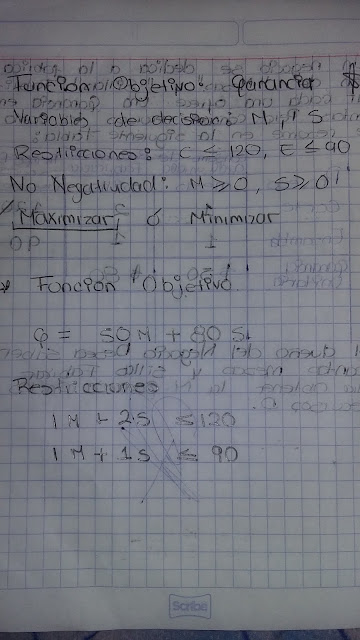 Función Objetivo: Ganancia $
Variables de decisión: M, S
Restricciones: C ≤ 120, E ≤ 90
No Negatividad: M ≥ 0, S ≥ 0
Maximizar ó Minimizar
Función Objetivo
G = 50 M + 80 S
Restricciones
1 M + 2 S ≤ 120
1 M + 1 S ≤ 90
Scribe